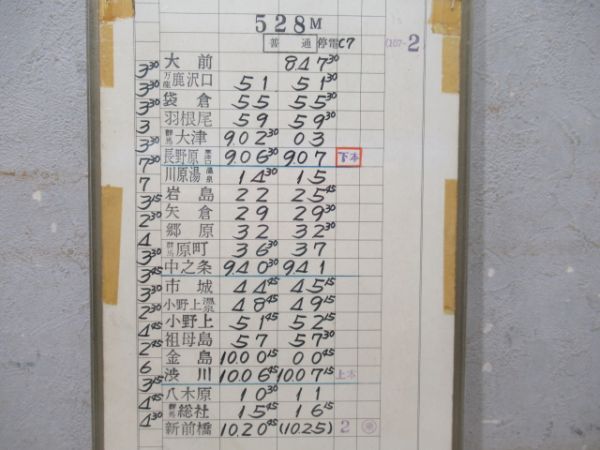 528M
普通 停電C7 (107-2
大前 847³⁰
3³⁰ 万座鹿沢口 51 51³⁰
3³⁰ 袋倉 55 55³⁰
3³⁰ 羽根尾 59 59³⁰
3 群馬大津 9.02³⁰ 03
3³⁰ 長野原草津口 9.06³⁰ 907 下本
7³⁰ 川原湯温泉 14³⁰ 15
7 岩島 22 25⁴⁵
3¹⁵ 矢倉 29 29³⁰
2³⁰ 郷原 32 32³⁰
4 群馬原町 36³⁰ 37
3³⁰ 中之条 940³⁰ 941
3⁴⁵ 市城 44⁴⁵ 45¹⁵
3³⁰ 小野上温泉 48⁴⁵ 49¹⁵
2³⁰ 小野上 51⁴⁵ 52¹⁵
4⁴⁵ 祖母島 57 57³⁰
2⁴⁵ 金島 10.00¹⁵ 00⁴⁵
6 渋川 10.06⁴⁵ 10.07¹⁵ 上本
3¹⁵ 八木原 10³⁰ 11
4⁴⁵ 群馬総社 15⁴⁵ 16¹⁵
4³⁰ 新前橋 10.20⁴⁵ (10.25) 2